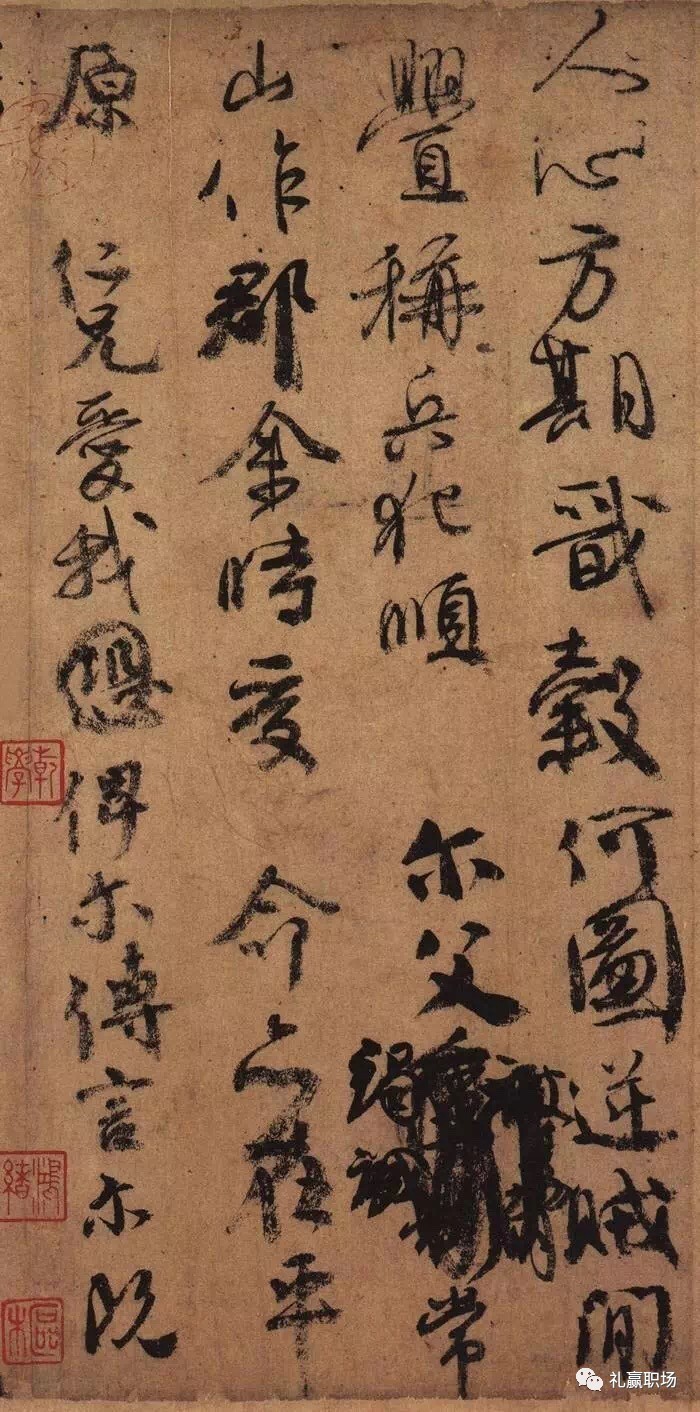 人心方期戩穀何圖逆賊閒
舋稱兵犯順尒父竭誠常
山作郡余時受命亦在平
原仁兄愛我恐俾尒傳言尒既
礼赢职场